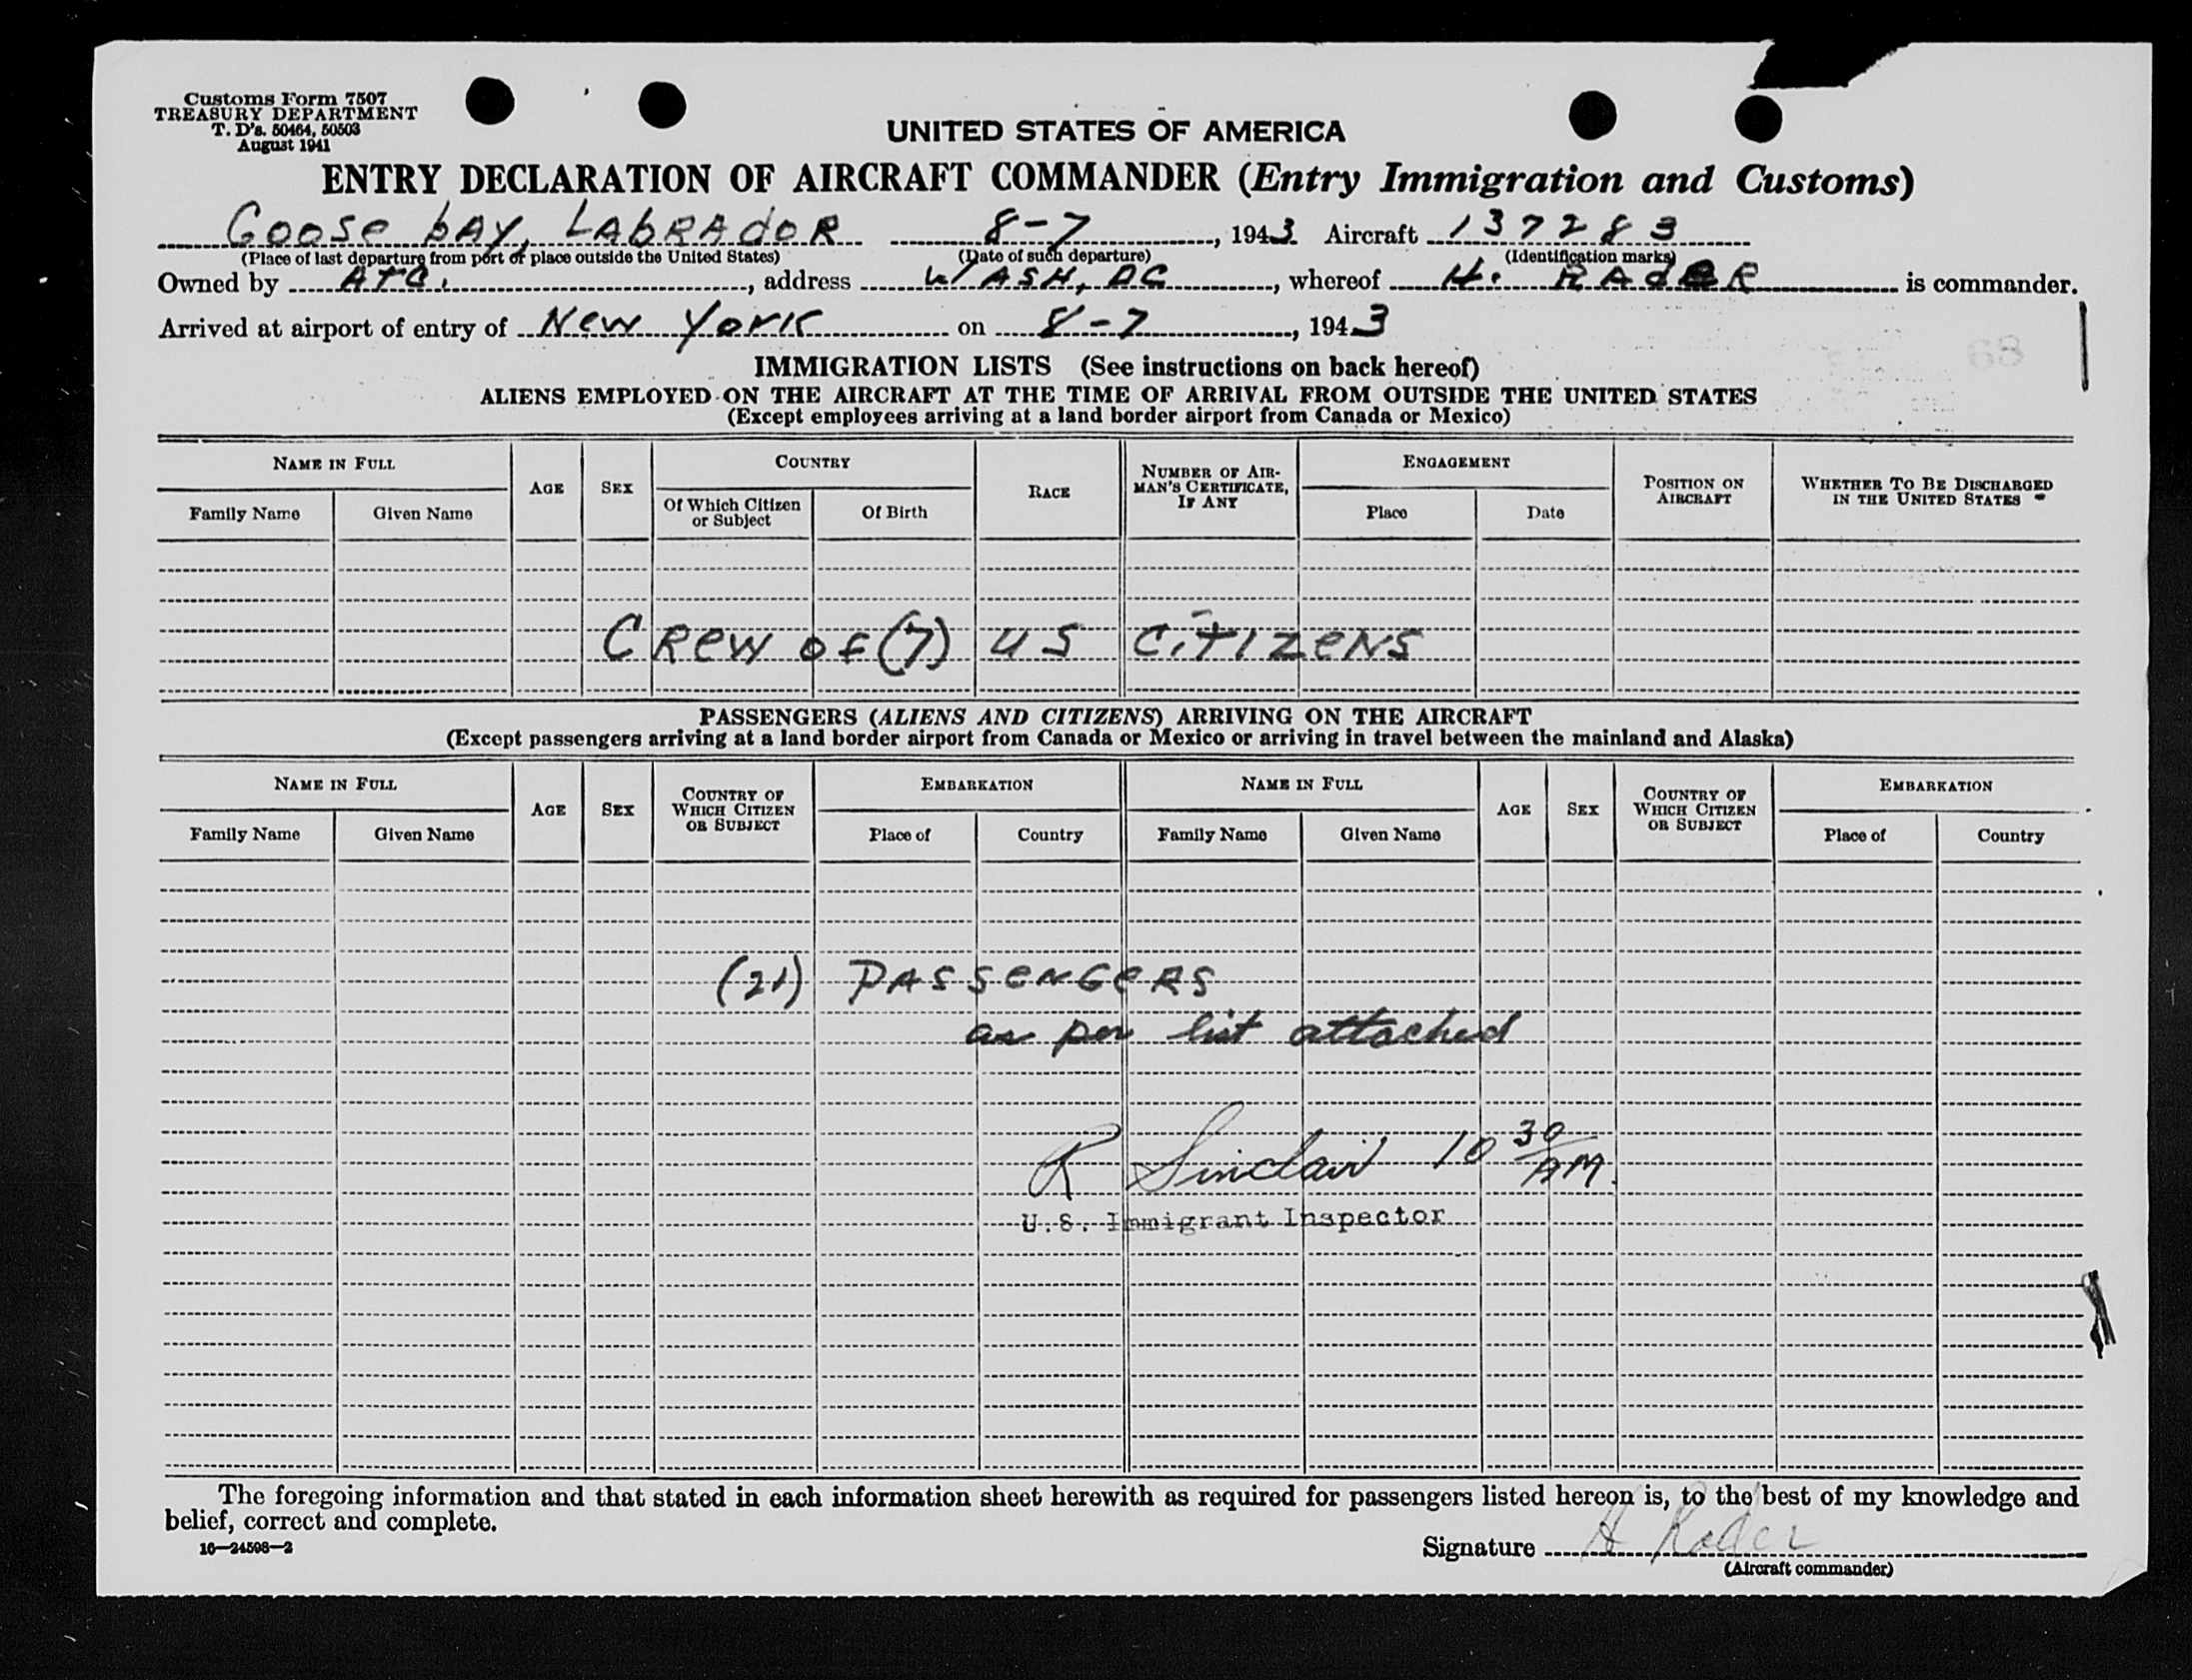 Customs Form 7507
TREASURY DEPARTMENT
T. D's. 50464, 50503
August 1941
UNITED STATES OF AMERICA
ENTRY DECLARATION OF AIRCRAFT COMMANDER (Entry Immigration and Customs)
Goose bAY, LAbRAdoR 8-7, 1943 Aircraft 137283
(Place of last departure from port or place outside the United States) (Date of such departure) (Identification marks)
Owned by ATC., address WASH, DC, whereof H. RAdeR is commander.
Arrived at airport of entry of New York on 8-7, 1943
IMMIGRATION LISTS (See instructions on back hereof)
ALIENS EMPLOYED ON THE AIRCRAFT AT THE TIME OF ARRIVAL FROM OUTSIDE THE UNITED STATES
(Except employees arriving at a land border airport from Canada or Mexico)
NAME IN FULL AGE SEX COUNTRY RACE NUMBER OF AIRMAN'S CERTIFICATE, IF ANY ENGAGEMENT POSITION ON AIRCRAFT WHETHER TO BE DISCHARGED IN THE UNITED STATES
Family Name Given Name Of Which Citizen or Subject Of Birth Place Date
CRew of (7) US CiTIZeNS
PASSENGERS (ALIENS AND CITIZENS) ARRIVING ON THE AIRCRAFT
(Except passengers arriving at a land border airport from Canada or Mexico or arriving in travel between the mainland and Alaska)
NAME IN FULL AGE SEX COUNTRY OF WHICH CITIZEN OR SUBJECT EMBARKATION NAME IN FULL AGE SEX COUNTRY OF WHICH CITIZEN OR SUBJECT EMBARKATION
Family Name Given Name Place of Country Family Name Given Name Place of Country
(21) PASSeNGeRS
as per list attached
R Sinclair 10 30 AM.
U.S. Immigrant Inspector
The foregoing information and that stated in each information sheet herewith as required for passengers listed hereon is, to the best of my knowledge and
belief, correct and complete.
16—24598—2
Signature H Rader
(Aircraft commander)